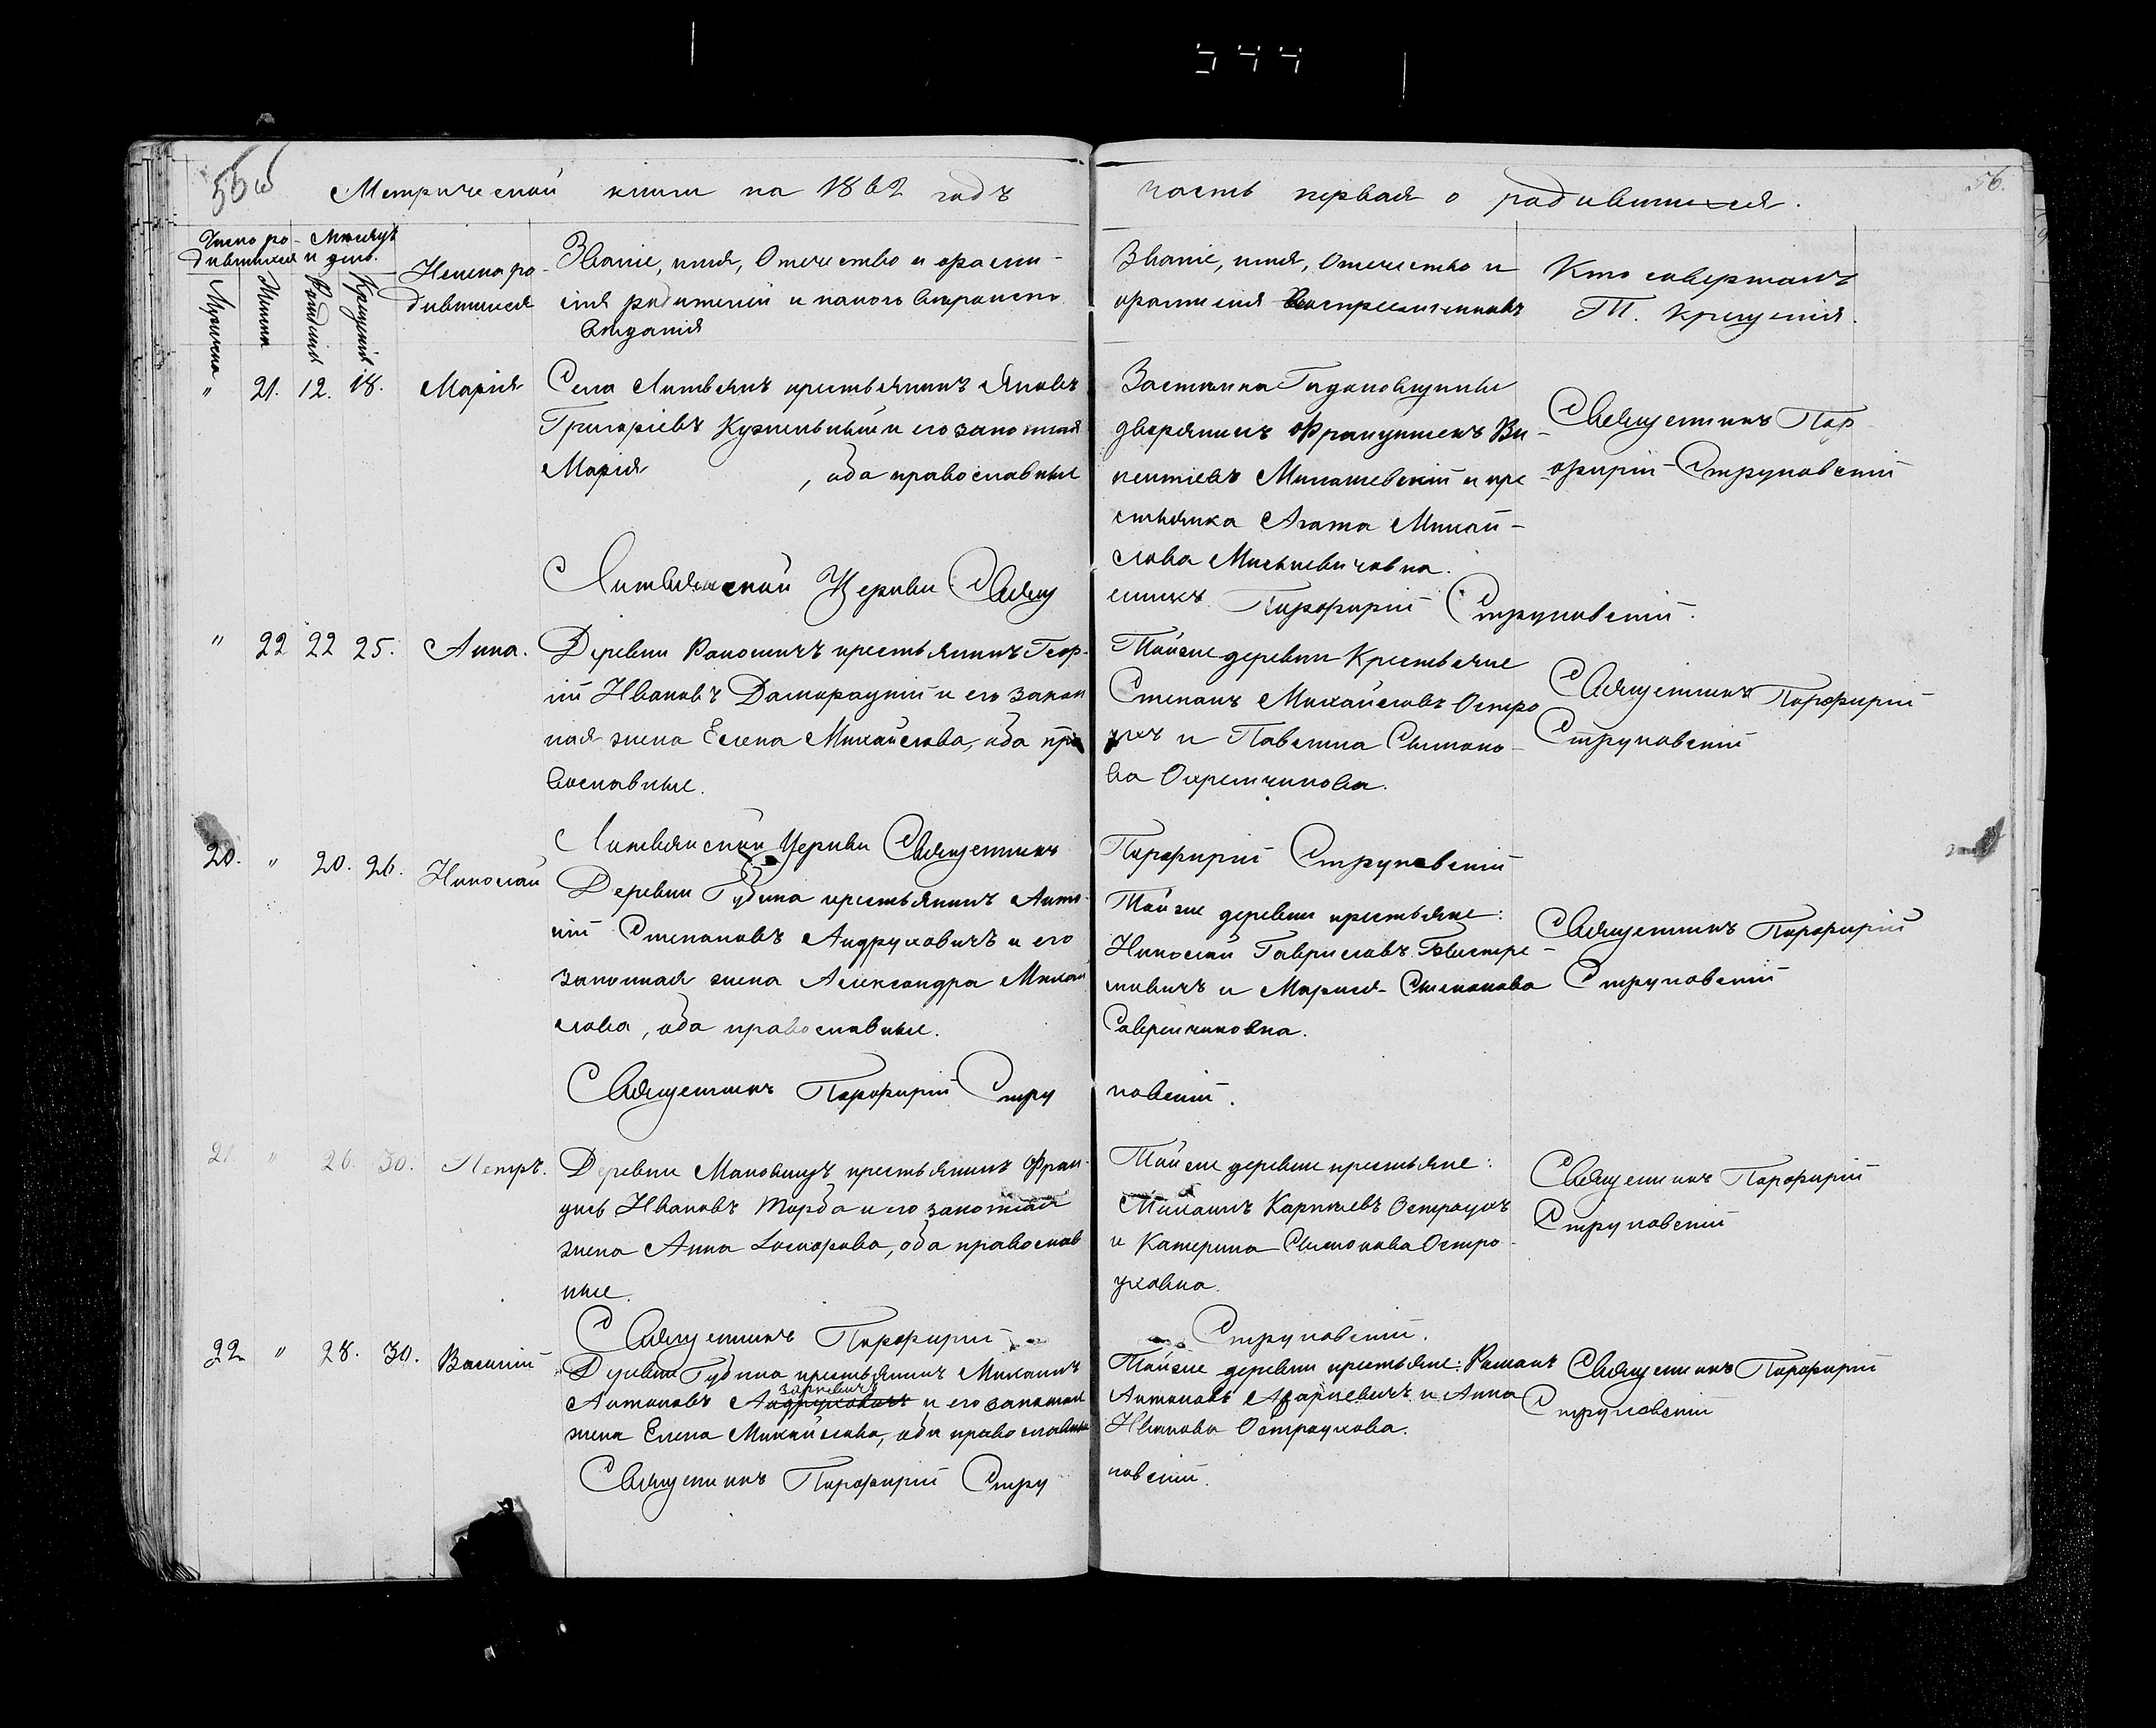 544
55 об
56.
Метрической книги на 1862 годъ
часть первая о родившихся.
Число родившихся
Мѣсяцъ и день.
Мужеска
Женска
Рожденія
Крещенія
Имена ро-
дившихся
Званіе, имя, отечество и фами-
лія родителей и какого вѣроиспо
вѣданія
Званіе, имя, отечество и
фамилія воспреемниковъ
Кто совершалъ
Т. Крещенія.
" 21. 12. 18. Марія
Села Литвянъ крестьянинъ Яковъ
Григоріевъ и его законная
Марія , оба православные
Застѣнка
дворянинъ Францишекъ Ви-
кентіевъ Милашевскій и кре-
стьянка Агата Михай-
лова Мицкевичовна.
Священникъ Пор-
фирій Струковскій
Литвянской Церкви Свящ
енникъ Порфирій Струковскій.
" 22 22 25. Анна.
Деревни Ракошичъ крестьянинъ Геор-
гій Ивановъ Даморацкій и его закон
ная жена Елена Михайлова, оба пра
вославные.
Тойже деревни Крестьяне
Степанъ Михайловъ Остро
ухъ и Павелина Симоно-
ва
Священникъ Порфирій
Струковскій
Литвянской Церкви Священникъ
Порфирій Струковскій
20. " 20. 26. Николай
Деревни Губина крестьянинъ Анто-
ній Степановъ Андруховичъ и его
законная жена Александра Михай
лова, оба православные.
Тойже деревни крестьяне:
Николай Гавриловъ
и Марья Степанова
Священникъ Порфирій
Струковскій
Священникъ Порфирій Стру
ковскій.
21. " 26. 30. Петръ.
Деревни Маковищъ крестьянинъ Фран-
цъ Ивановъ Торба и его законная
жена Анна , оба православ
ные.
Тойже деревни крестьяне:
Михаилъ Карпиевъ Остроухъ
и Катерина Симонова Остро-
уховна.
Священникъ Порфирій
Струковскій
Священникъ Порфирій
Струковскій.
22. " 28. 30. Василій
Деревни Губина крестьянинъ Михаилъ
Антоновъ Азаркевичъ и его законная
жена Елена Михайлова, оба православные
Тойже деревни крестьяне: Романъ
Антоновъ Азаркевичъ и Анна
Иванова Остроухова.
Священникъ Порфирій
Струковскій
Священникъ Порфирій Стру
ковскій.